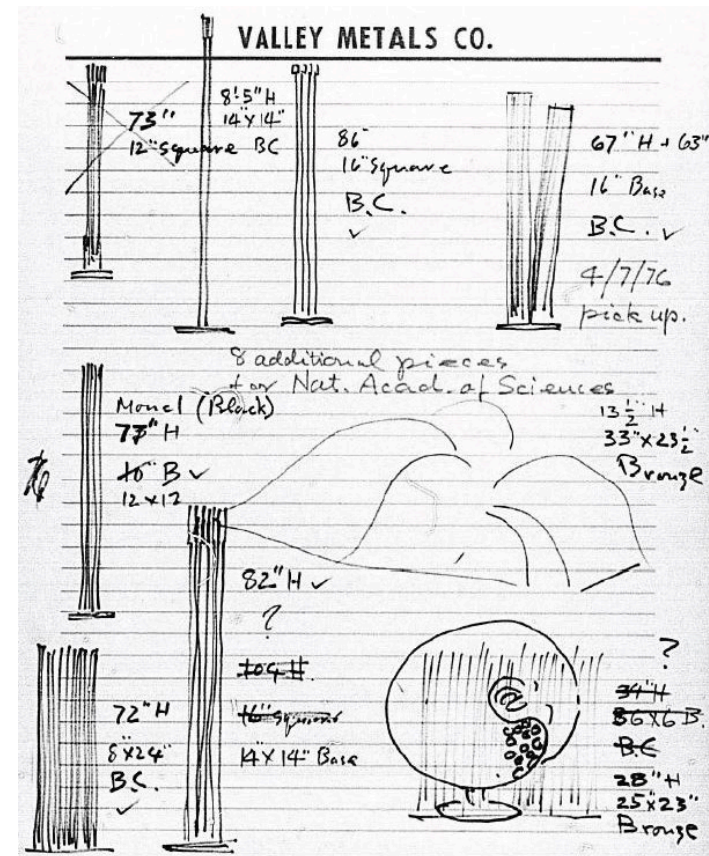 VALLEY METALS CO.
73"
12" square BC
8'5" H
14"x14"
86"
16" square
B.C.
67" H + 63"
16" Base
B.C.
4/7/76
pick up.
8 additional pieces
for Nat. Acad. of Sciences
Monel (Black)
77" H
10" B
12 x 12
13 1/2" H
33" x 23 1/2"
Bronze
82" H
?
104 H.
16" square
14 x 14" Base
72" H
8 x 24"
B.C.
?
34" H
36 x 6 B.
B.C
28" H
25 x 23"
Bronze